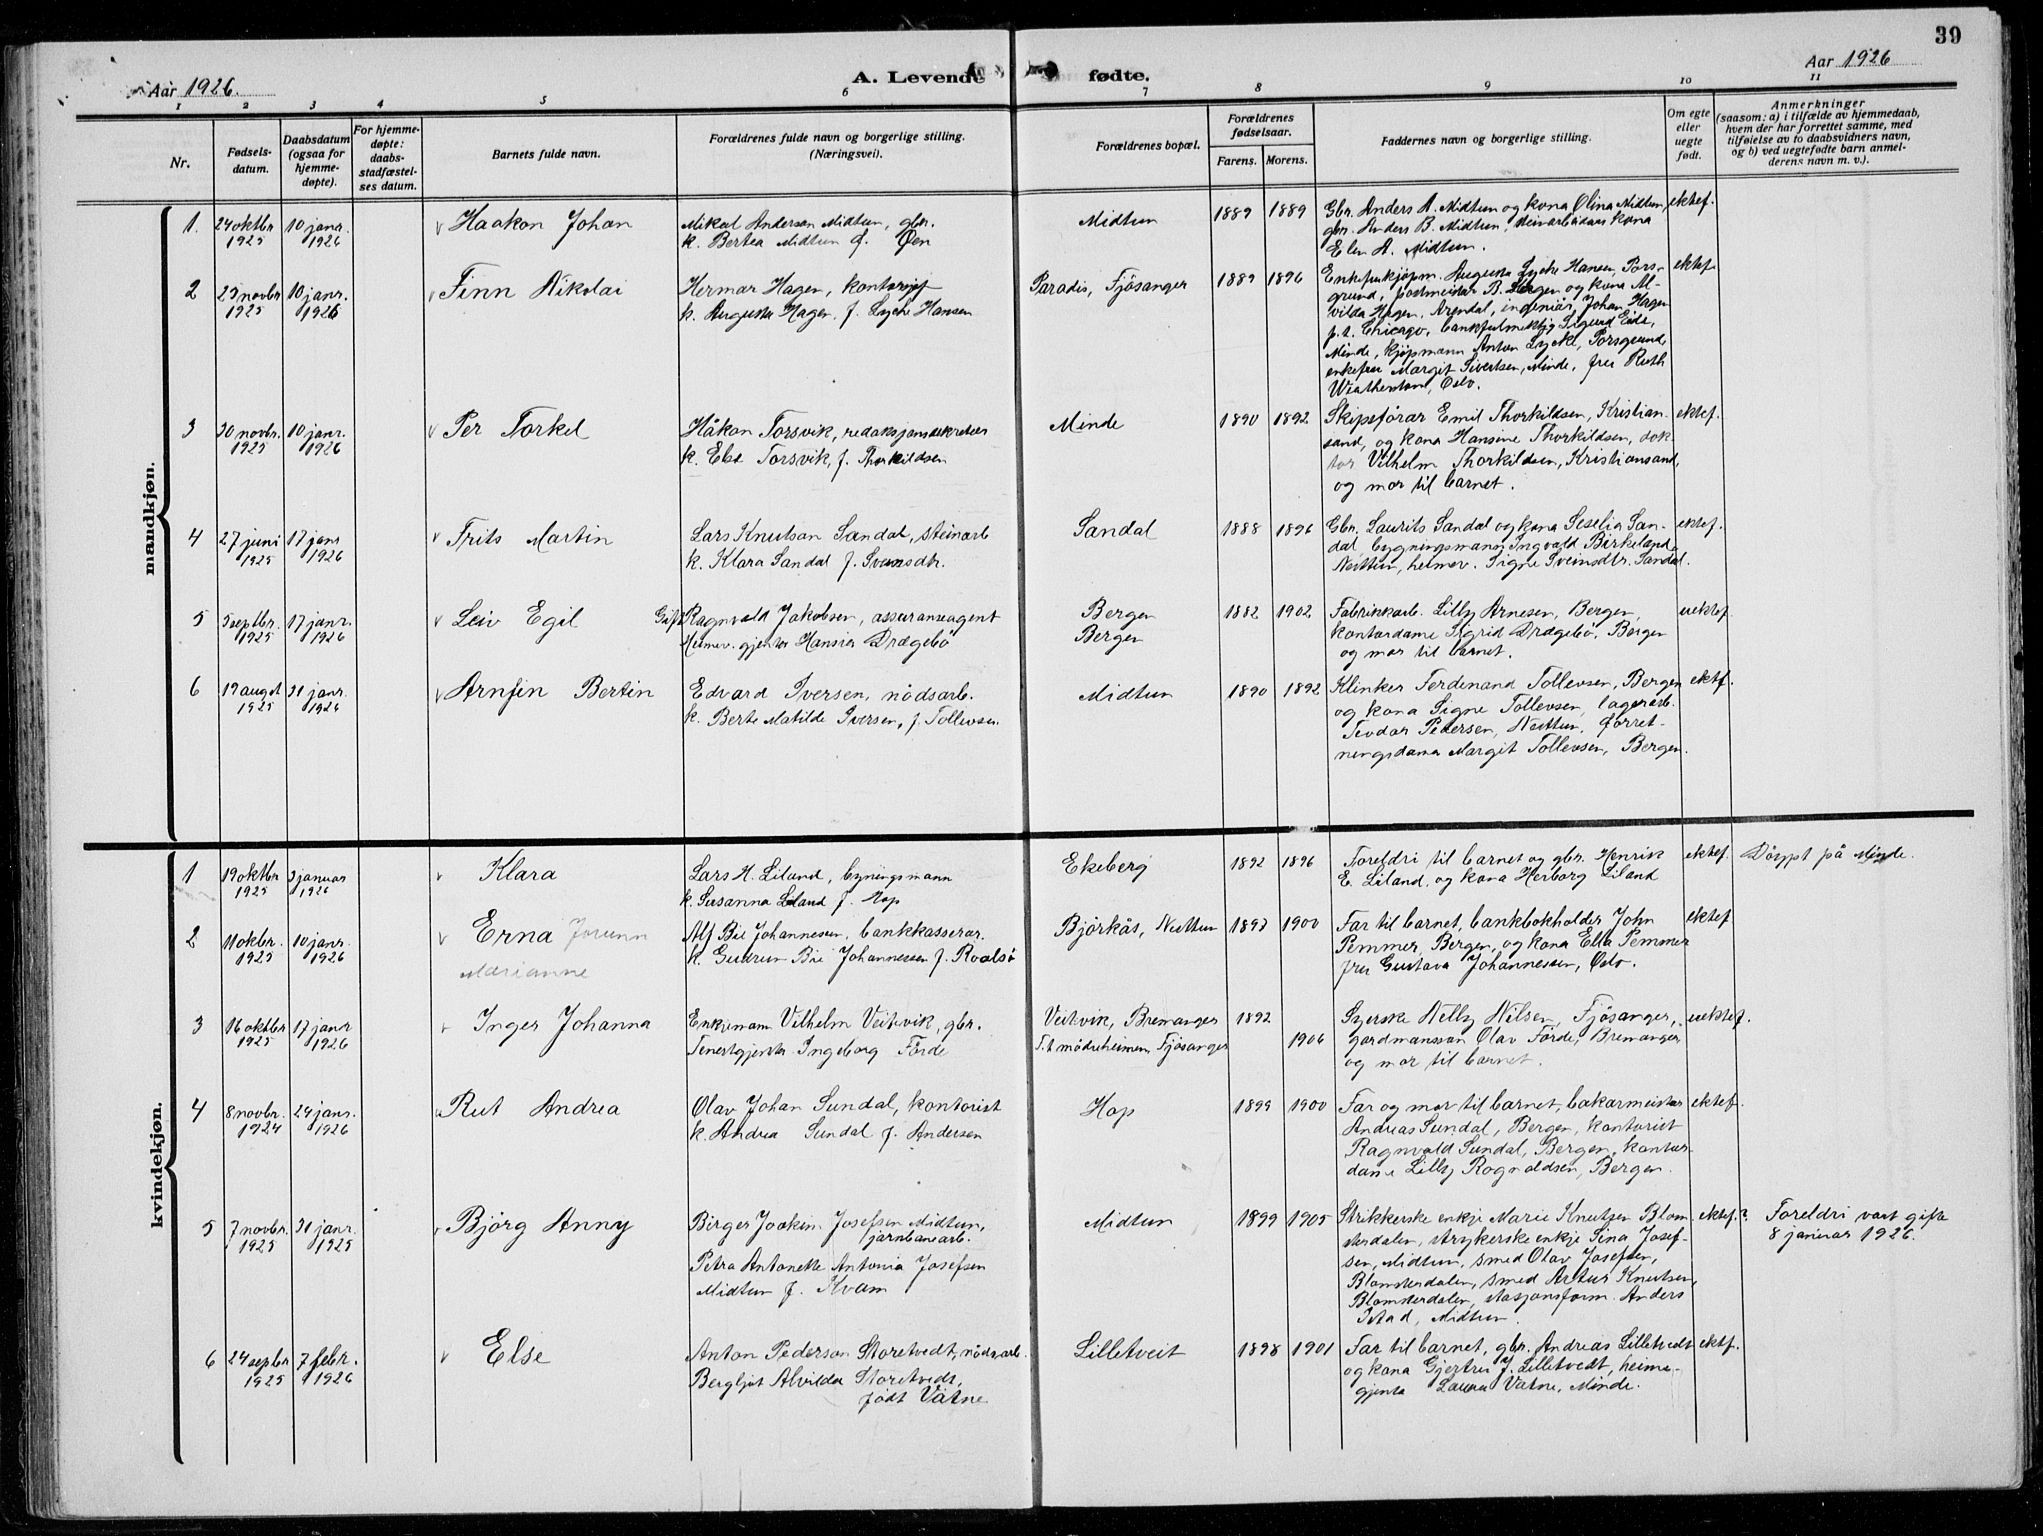 39
Aar 1926.
A. Levende fødte.
Aar 1926
1 2 3 4 5 6 7 8 9 10 11
Nr.
Fødsels-
datum.
Daabsdatum
(ogsaa for
hjemme-
døpte).
For hjemme-
døpte:
daabs-
stadfæstel-
ses datum.
Barnets fulde navn.
Forældrenes fulde navn og borgerlige stilling.
(Næringsvei).
Forældrenes bopæl.
Forældrenes
fødselsaar.
Farens. Morens.
Faddernes navn og borgerlige stilling.
Om egte
eller
uegte
født.
Anmerkninger
(saasom: a) i tilfælde av hjemmedaab,
hvem der har forrettet samme, med
tilføielse av to daabsvidners navn,
og b) ved uegtefødte barn anmel-
derens navn m. v.).
mandkjøn.
1. 24 oktbr 1925
10 janr. 1926
Haakon Johan
Mikal Andersen Midtun, gbr.
k. Bertea Midtun f. Øen
Midtun
1889 1889
Gbr. Anders A. Midtun og kona Olina Midtun,
gbr. Anders B. Midtun, steinarbeidars kona
Elen A. Midtun.
ektef.
2 25 novbr 1925
10 janr. 1926
Finn Nikolai
Hermar Hagen, kontorsjef
k. Augusta Hagen, f. Lyche Hansen
Paradis, Fjösanger
1889 1896
Enkefrukjøpm. Augusta Lyche Hansen, Pors-
grund, postmeister B. Hagen og kona Al-
vilda Hagen, Arendal, ingeniør Johan Hagen
p.t. Chicago, bankfulmektig Sigurd Eide,
Minde, kjøpmann Anton Lyche, Porsgrund,
enkefru Margit Sivertsen, Minde, fru Ruth
Oslo.
ektef.
3 30 novbr. 1925
10 janr. 1926
Per Torkel
Håkon Torsvik, redaksjonssekretær
k. Else Torsvik, f. Thorkildsen
Minde
1890 1892
Skipsførar Emil Thorkildsen, Kristian-
sand, og kona Hansine Thorkildsen, dok-
tor Vilhelm Thorkildsen, Kristiansand,
og mor til barnet.
ektef.
4 27 juni 1925
17 janr 1926
Frits Martin
Lars Knutson Sandal, steinarb
k. Klara Sandal f. Sveinsdtr.
Sandal
1888 1896
Gbr. Laurits Sandal og kona Seselia San-
dal, bygningsmann Ingvald Birkeland,
Nesttun, heimev. Signe Sveinsdtr. Sandal.
ektef.
5 5 septbr. 1925
17 janr. 1926
Leiv Egil
Gift Ragnvald Jakobsen, assuranseagent
Heimev. gjenta Hansine Drægebö
Bergen
Bergen
1882 1902
Fabrikkarb. Lilly Arnesen, Bergen,
kontordame Sigrid Drægebö, Bergen
og mor til barnet.
uektef.
6 19 augst 1925
31 janr. 1926
Arnfin Bertin
Edvard Iversen, nödsarb.
k. Berte Matilde Iversen, f. Tollevsen.
Midtun
1890 1892
Klinker Ferdinand Tollevsen, Bergen
og kona Signe Tollevsen, lagerarb.
Teodor Pedersen, Nesttun, forret-
ningsdama Margit Tollevsen, Bergen.
ektf.
kvindekjøn.
1 19 oktbr 1925
3 januar 1926
Klara
Lars H. Liland, bygningsmann
k. Susanna Liland f. Hop
Ekeberg
1892 1896
Foreldri til barnet og gbr. Henrik
E. Liland, og kona Herborg Liland
ektef.
Döypt på Minde.
2 11 okbr. 1925
10 janr. 1926
Erna Jorunn
Marianne
Alf Bie Johannesen, bankkasserar.
k. Gudrun Bie Johannessen f. Roalsö
Björkås, Nesttun
1893 1900
Far til barnet, bankbokholder John
Pemmer, Bergen, og kona Ella Pemmer
fru Gustava Johannessen, Oslo.
ektef
3 16 oktbr 1925
17 janr 1926
Inger Johanna
Enkjemann Vilhelm Veitvik, gbr.
Tenestgjenta Ingeborg Förde
Veitvik, Bremanger
T.t mödreheimen, Fjösanger
1892
1906
Syerske Nelly Nilsen, Fjösanger,
gardmannsson Olav Förde, Bremanger,
og mor til barnet.
uektef.
4 8 novbr. 1924
24 janr. 1926
Rut Andrea
Olav Johan Sundal, kontorist
k. Andrea Sundal f. Andersen
Hop
1899 1900
Far og mor til barnet, bakarmeister
Andreas Sundal, Bergen, kontorist
Ragnvald Sundal, Bergen, kontor-
dame Lilly Rognaldsen, Bergen.
ektef.
5 7 novbr. 1925
31 janr. 1925
Björg Anny
Birger Joakim Josefsen Midtun,
jarnbanearb.
Petra Antonette Antonia Josefsen
Midtun f. Kvam
Midtun
1899 1905
Strikkerske enkje Marie Knutsen Blom-
sterdalen, strykerske enkje Sina Josef-
sen, Midtun, smed Olav Josefsen,
Blomsterdalen, smed Artur Knutsen,
Blomsterdalen, stasjonsform. Anders
Midtun.
ektef.?
Foreldri vart gifte
8 januar 1926.
6 24 sepbr 1925
7 febr. 1926
Else
Anton Pederson Storetvedt, nödsarb.
Bergljot Alvilda Storetvedt,
født Vatne
Lilletveit
1898 1901
Far til barnet, gbr. Andreas Lilletvedt
og kona Gjertru J. Lilletvedt, heime-
gjenta Laura Vatne, Minde.
ektf.